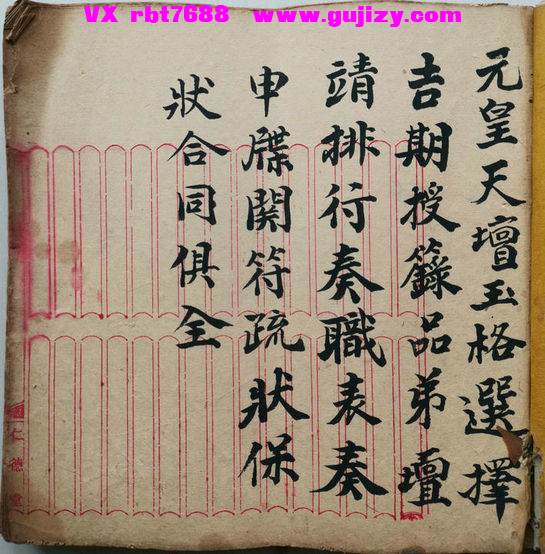 VX rbt7688 www.gujizy.com
元皇天壇玉格選擇
吉期授籙品弟壇
靖排行奏職表奏
申牒関符疏狀保
狀合同俱全
仁德堂